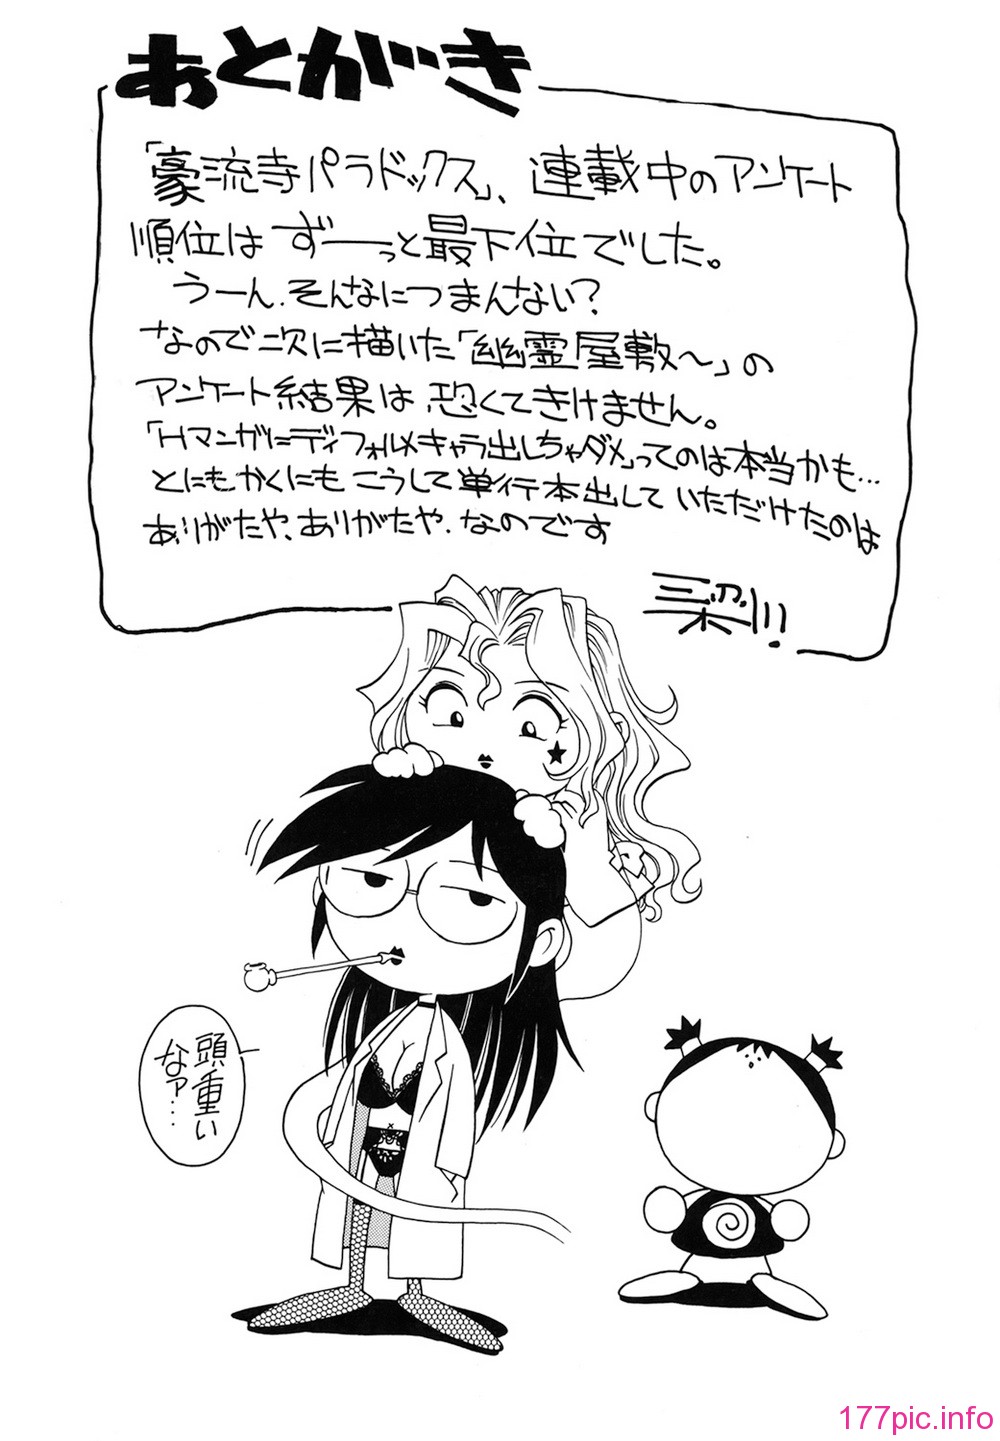 あとがき
「豪流寺パラドックス」、連載中のアンケート
順位は ずーーっと最下位でした。
うーん、そんなにつまんない?
なので次に描いた「幽霊屋敷〜」の
アンケート結果は、恐くてきけません。
「Hマンガにディフォルメキャラ出しちゃダメ」ってのは本当かも…
とにもかくにも こうして単行本出して いただけたのは
ありがたや、ありがたや、なのです
三梨川!
頭重い
なァ…
177pic.info